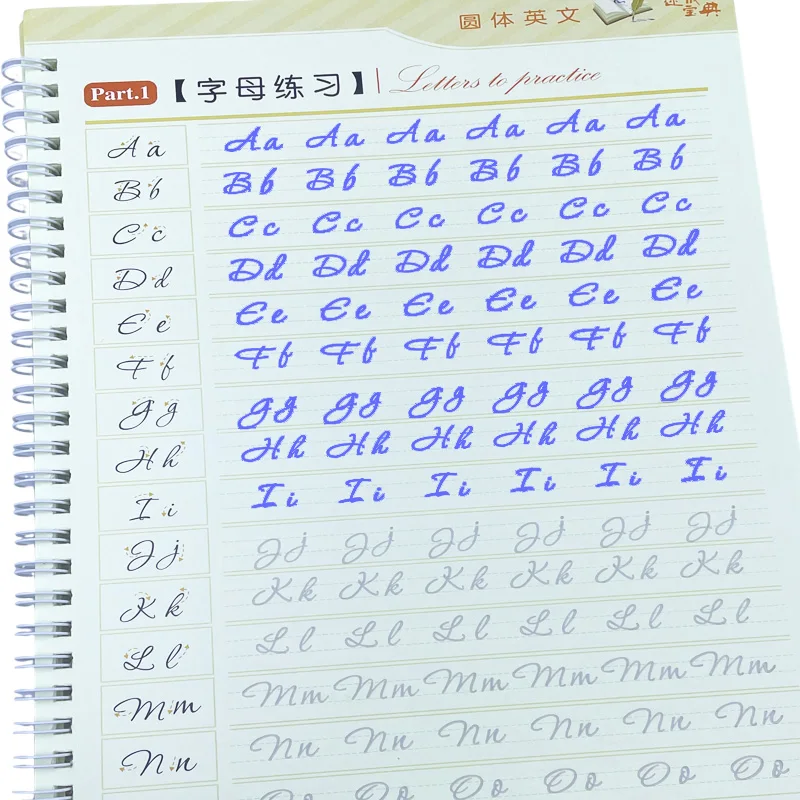 圆体英文
宝典
Part.1 【字母练习】 Letters to practice
A a Aa Aa Aa Aa Aa Aa
B b Bb Bb Bb Bb Bb Bb
C c Cc Cc Cc Cc Cc Cc
D d Dd Dd Dd Dd Dd Dd
E e Ee Ee Ee Ee Ee Ee
F f Ff Ff Ff Ff Ff Ff
G g Gg Gg Gg Gg Gg Gg
H h Hh Hh Hh Hh Hh Hh
I i Ii Ii Ii Ii Ii Ii
J j Jj Jj Jj Jj Jj Jj
K k Kk Kk Kk Kk Kk Kk
L l Ll Ll Ll Ll Ll Ll
M m Mm Mm Mm Mm Mm Mm
N n Nn Nn Nn Nn Nn Nn
Oo Oo Oo Oo Oo Oo